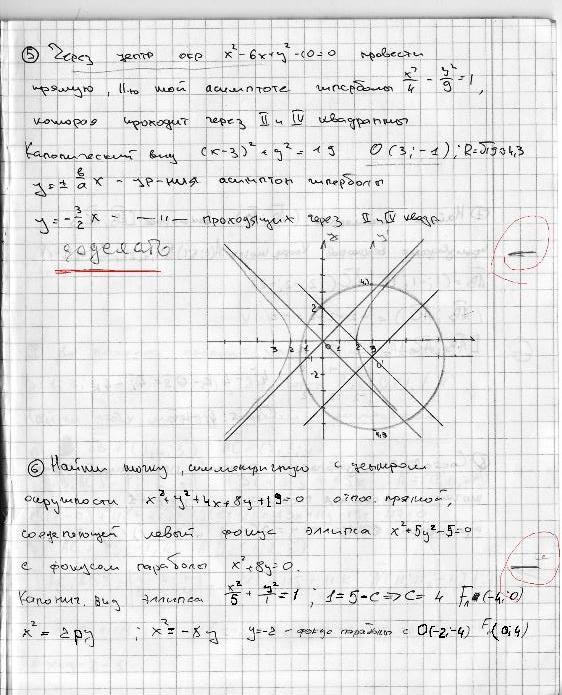 ⑤ Через центр окр x²-6x+y²-10=0 провести
прямую, ||-ю той асимптоте гиперболы x²/4 - y²/9 = 1,
которая проходит через II и IV квадранты
Канонический вид (x-3)²+y²=19 O(3;-1); R=√19≈4,3
y=± b/a x - ур-ния асимптот гиперболы
y=-3/2 x - —"— проходящих через II и IV квадр
доделать
⑥ Найти точку, симметричную с центром
окружности x²+y²+4x+8y+19=0 относ. прямой,
соединяющей левый фокус эллипса x²+5y²-5=0
с фокусом параболы x²+8y=0.
Канонич. вид эллипса x²/5 + y²/1 = 1; 1=5-c => c=4 F₁(-4;0)
x²=2py ; x²=-8y y=-2 - фокус параболы с O(-2;-4) F(0;4)